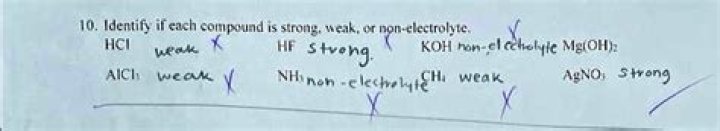 10. Identify if each compound is strong, weak, or non-electrolyte.
HCl weak X HF strong. X KOH non-electrolyte X Mg(OH)₂
AlCl₃ weak X NH₃ non-electrolyte X CH₄ weak X AgNO₃ strong